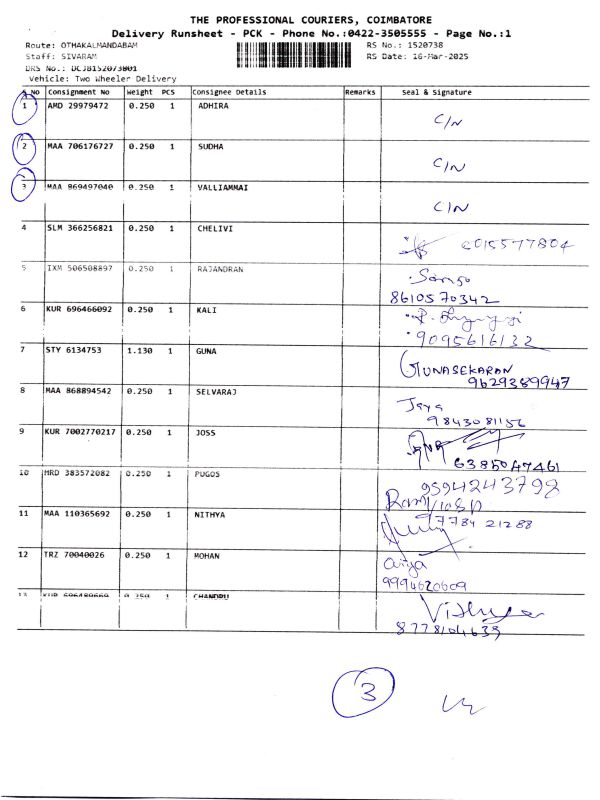 THE PROFESSIONAL COURIERS, COIMBATORE
Delivery Runsheet - PCK - Phone No.:0422-3505555 - Page No.:1
Route: OTHAKALMANDABAM RS No.: 1520738
Staff: SIVARAM RS Date: 16-Mar-2025
DRS No.: DCJB152073801
Vehicle: Two Wheeler Delivery
S No Consignment No Weight PCS Consignee Details Remarks Seal & Signature
1 AMD 29979472 0.250 1 ADHIRA C/N
2 MAA 706176727 0.250 1 SUDHA C/N
3 MAA 869497040 0.250 1 VALLIAMMAI C/N
4 SLM 366256821 0.250 1 CHELIVI
5 IXM 506508897 0.250 1 RAJANDRAN
8610570342
6 KUR 696466092 0.250 1 KALI
9095616132
7 STY 6134753 1.130 1 GUNA GUNASEKARAN
9629389947
8 MAA 868894542 0.250 1 SELVARAJ Jaya
9843081156
9 KUR 7002770217 0.250 1 JOSS
6385047461
10 MRD 383572082 0.250 1 PUGOS 9594243798
11 MAA 110365692 0.250 1 NITHYA
12 TRZ 70040026 0.250 1 MOHAN
9994620609
13 KUR 696480669 0.250 1 CHANDRU Vidhya
8778104639
3